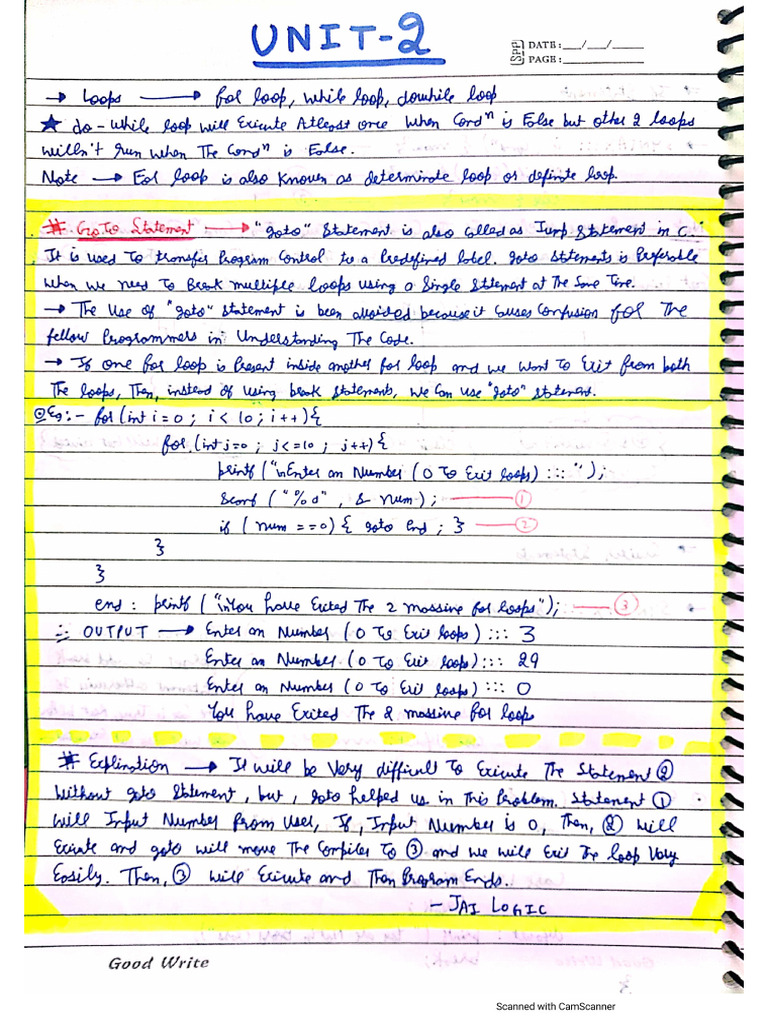 UNIT-2
Spp DATE:__/__/____
PAGE:________
→ Loops → for loop, while loop, dowhile loop
★ do-while loop will Exicute Atleast once when Condⁿ is False but other 2 loops
willn't run when The Condⁿ is False.
Note → For loop is also Known as determinate loop or definite loop.
# Go To Statement → "goto" Statement is also called as Jump Statement in C.
It is used To transfer Program Control to a Predefined label. goto Statements is Preferable
when we need To Break multiple Loops using a Single Statement at The Same Time.
→ The Use of "goto" Statement is been avoided because it Causes Confusion for The
fellow Programmers in Understanding The Code.
→ If one for loop is Present inside another for loop and we Want To Exit from both
The loops, Then, instead of using break Statements, We Can Use "goto" Statement.
Eg:- for(int i=0 ; i<10 ; i++){
for(int j=0 ; j<=10 ; j++){
printf("\nEnter an Number (0 To Exit loops) :::");
Scanf ("%d", & num); ①
if (num ==0){ goto End ; } ②
}
}
end : printf ("\nYou have Exited The 2 massive for loops"); ③
∴ OUTPUT → Enter an Number (0 To Exit loops) ::: 3
Enter an Number (0 To Exit loops) ::: 29
Enter an Number (0 To Exit loops) ::: 0
You have Exited The 2 massive for loops
# Explination → It will be Very difficult To Exicute The Statement ②
Without goto Statement, but, goto helped us in This Problem. Statement ①
will Input Number from User, If, Input Number is 0, Then, ② will
Exicute and goto will move The Compiler To ③ and we will Exit The loop Very
Easily. Then, ③ will Exicute and Then Program Ends.
- JAI LOGIC
Good Write
Scanned with CamScanner